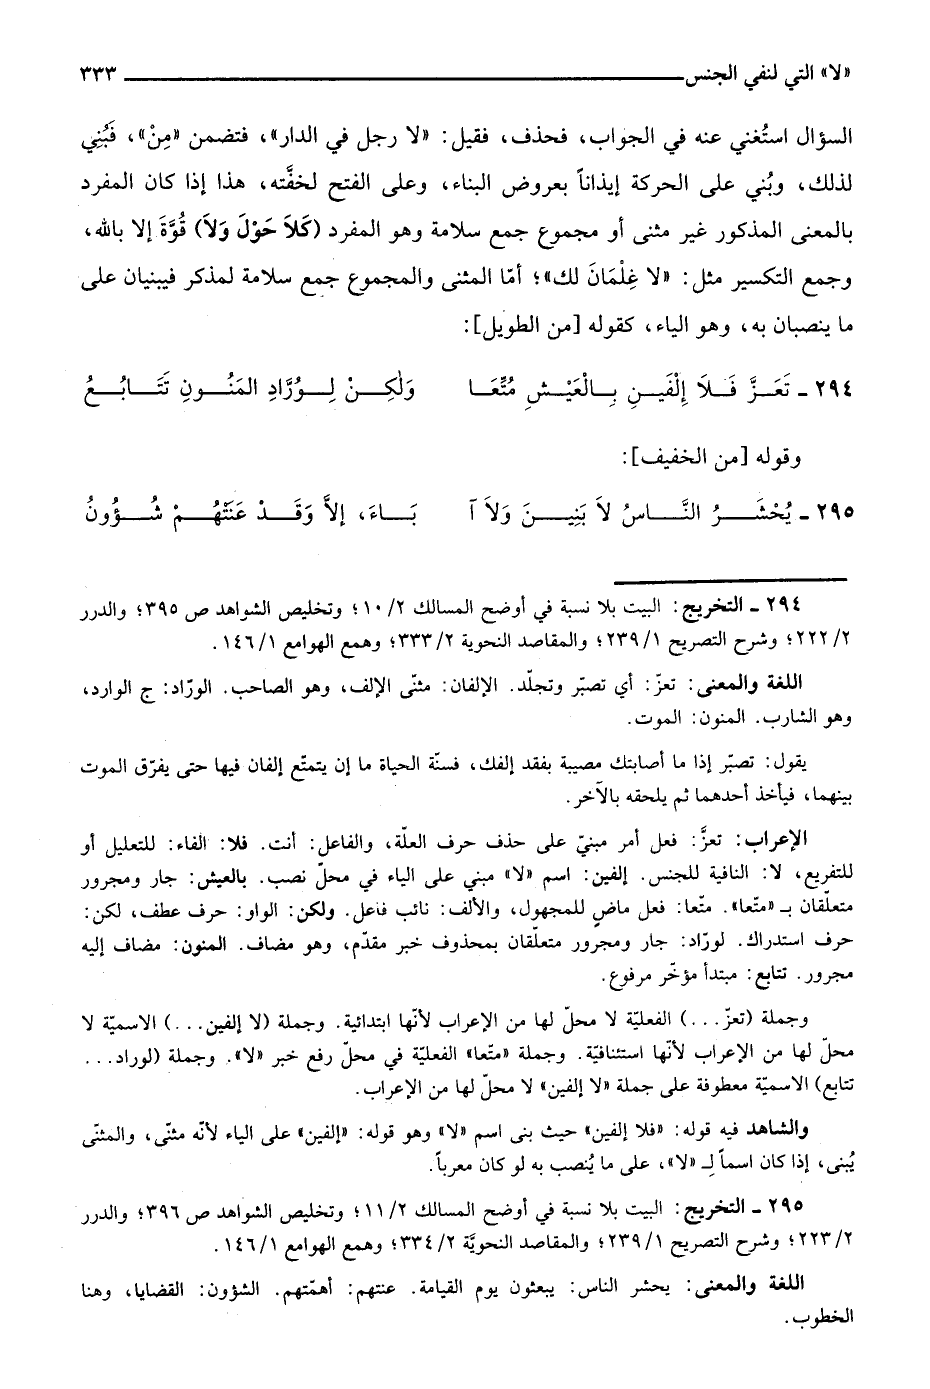 «لا» التي لنفي الجنس ٣٣٣
السؤال استُغني عنه في الجواب، فحذف، فقيل: «لا رجل في الدار»، فتضمن «مِنْ»، فَبُنِي
لذلك، وبُني على الحركة إيذاناً بعروض البناء، وعلى الفتح لخفَّته، هذا إذا كان المفرد
بالمعنى المذكور غير مثنى أو مجموع جمع سلامة وهو المفرد (كَلاَ حَوْلَ وَلاَ) قُوَّةَ إلا بالله،
وجمع التكسير مثل: «لا غِلْمَانَ لك»؛ أمّا المثنى والمجموع جمع سلامة لمذكر فيبنيان على
ما ينصبان به، وهو الياء، كقوله [من الطويل]:
٢٩٤ ـ تَعَـزَّ فَـلاَ إِلْفَيـنِ بِـالْعَيْـشِ مُتِّعَـا وَلٰكِـنْ لِـوُرَّادِ المَنُـونِ تَتَـابُـعُ
وقوله [من الخفيف]:
٢٩٥ ـ يُحْشَـرُ النَّـاسُ لاَ بَنِيـنَ وَلاَ آ بَـاءَ، إلاَّ وَقَـدْ عَنَتْهُـمْ شُـؤُونُ
٢٩٤ ـ التخريج: البيت بلا نسبة في أوضح المسالك ١٠/٢؛ وتخليص الشواهد ص ٣٩٥؛ والدرر
٢٢٢/٢؛ وشرح التصريح ٢٣٩/١؛ والمقاصد النحوية ٣٣٣/٢؛ وهمع الهوامع ١٤٦/١.
اللغة والمعنى: تعزّ: أي تصبّر وتجلّد. الإلفان: مثنّى الإلف، وهو الصاحب. الورّاد: ج الوارد،
وهو الشارب. المنون: الموت.
يقول: تصبّر إذا ما أصابتك مصيبة بفقد إلفك، فسنّة الحياة ما إن يتمتّع إلفان فيها حتى يفرّق الموت
بينهما، فيأخذ أحدهما ثم يلحقه بالآخر.
الإعراب: تعزَّ: فعل أمر مبنيّ على حذف حرف العلّة، والفاعل: أنت. فلا: الفاء: للتعليل أو
للتفريع، لا: النافية للجنس. إلفين: اسم «لا» مبني على الياء في محلّ نصب. بالعيش: جار ومجرور
متعلّقان بـ «متّعا». متّعا: فعل ماضٍ للمجهول، والألف: نائب فاعل. ولكن: الواو: حرف عطف، لكن:
حرف استدراك. لورّاد: جار ومجرور متعلّقان بمحذوف خبر مقدّم، وهو مضاف. المنون: مضاف إليه
مجرور. تتابع: مبتدأ مؤخّر مرفوع.
وجملة (تعزّ...) الفعليّة لا محلّ لها من الإعراب لأنّها ابتدائية. وجملة (لا إلفين...) الاسميّة لا
محلّ لها من الإعراب لأنّها استئنافيّة. وجملة «متّعا» الفعليّة في محلّ رفع خبر «لا». وجملة (لوراد...
تتابع) الاسميّة معطوفة على جملة «لا إلفين» لا محلّ لها من الإعراب.
والشاهد فيه قوله: «فلا إلفين» حيث بنى اسم «لا» وهو قوله: «إلفين» على الياء لأنّه مثنّى، والمثنّى
يُبنى، إذا كان اسماً لِـ «لا»، على ما يُنصب به لو كان معرباً.
٢٩٥ ـ التخريج: البيت بلا نسبة في أوضح المسالك ١١/٢؛ وتخليص الشواهد ص ٣٩٦؛ والدرر
٢٢٣/٢؛ وشرح التصريح ٢٣٩/١؛ والمقاصد النحويَّة ٣٣٤/٢؛ وهمع الهوامع ١٤٦/١.
اللغة والمعنى: يحشر الناس: يبعثون يوم القيامة. عنتهم: أهمّتهم. الشؤون: القضايا، وهنا
الخطوب.